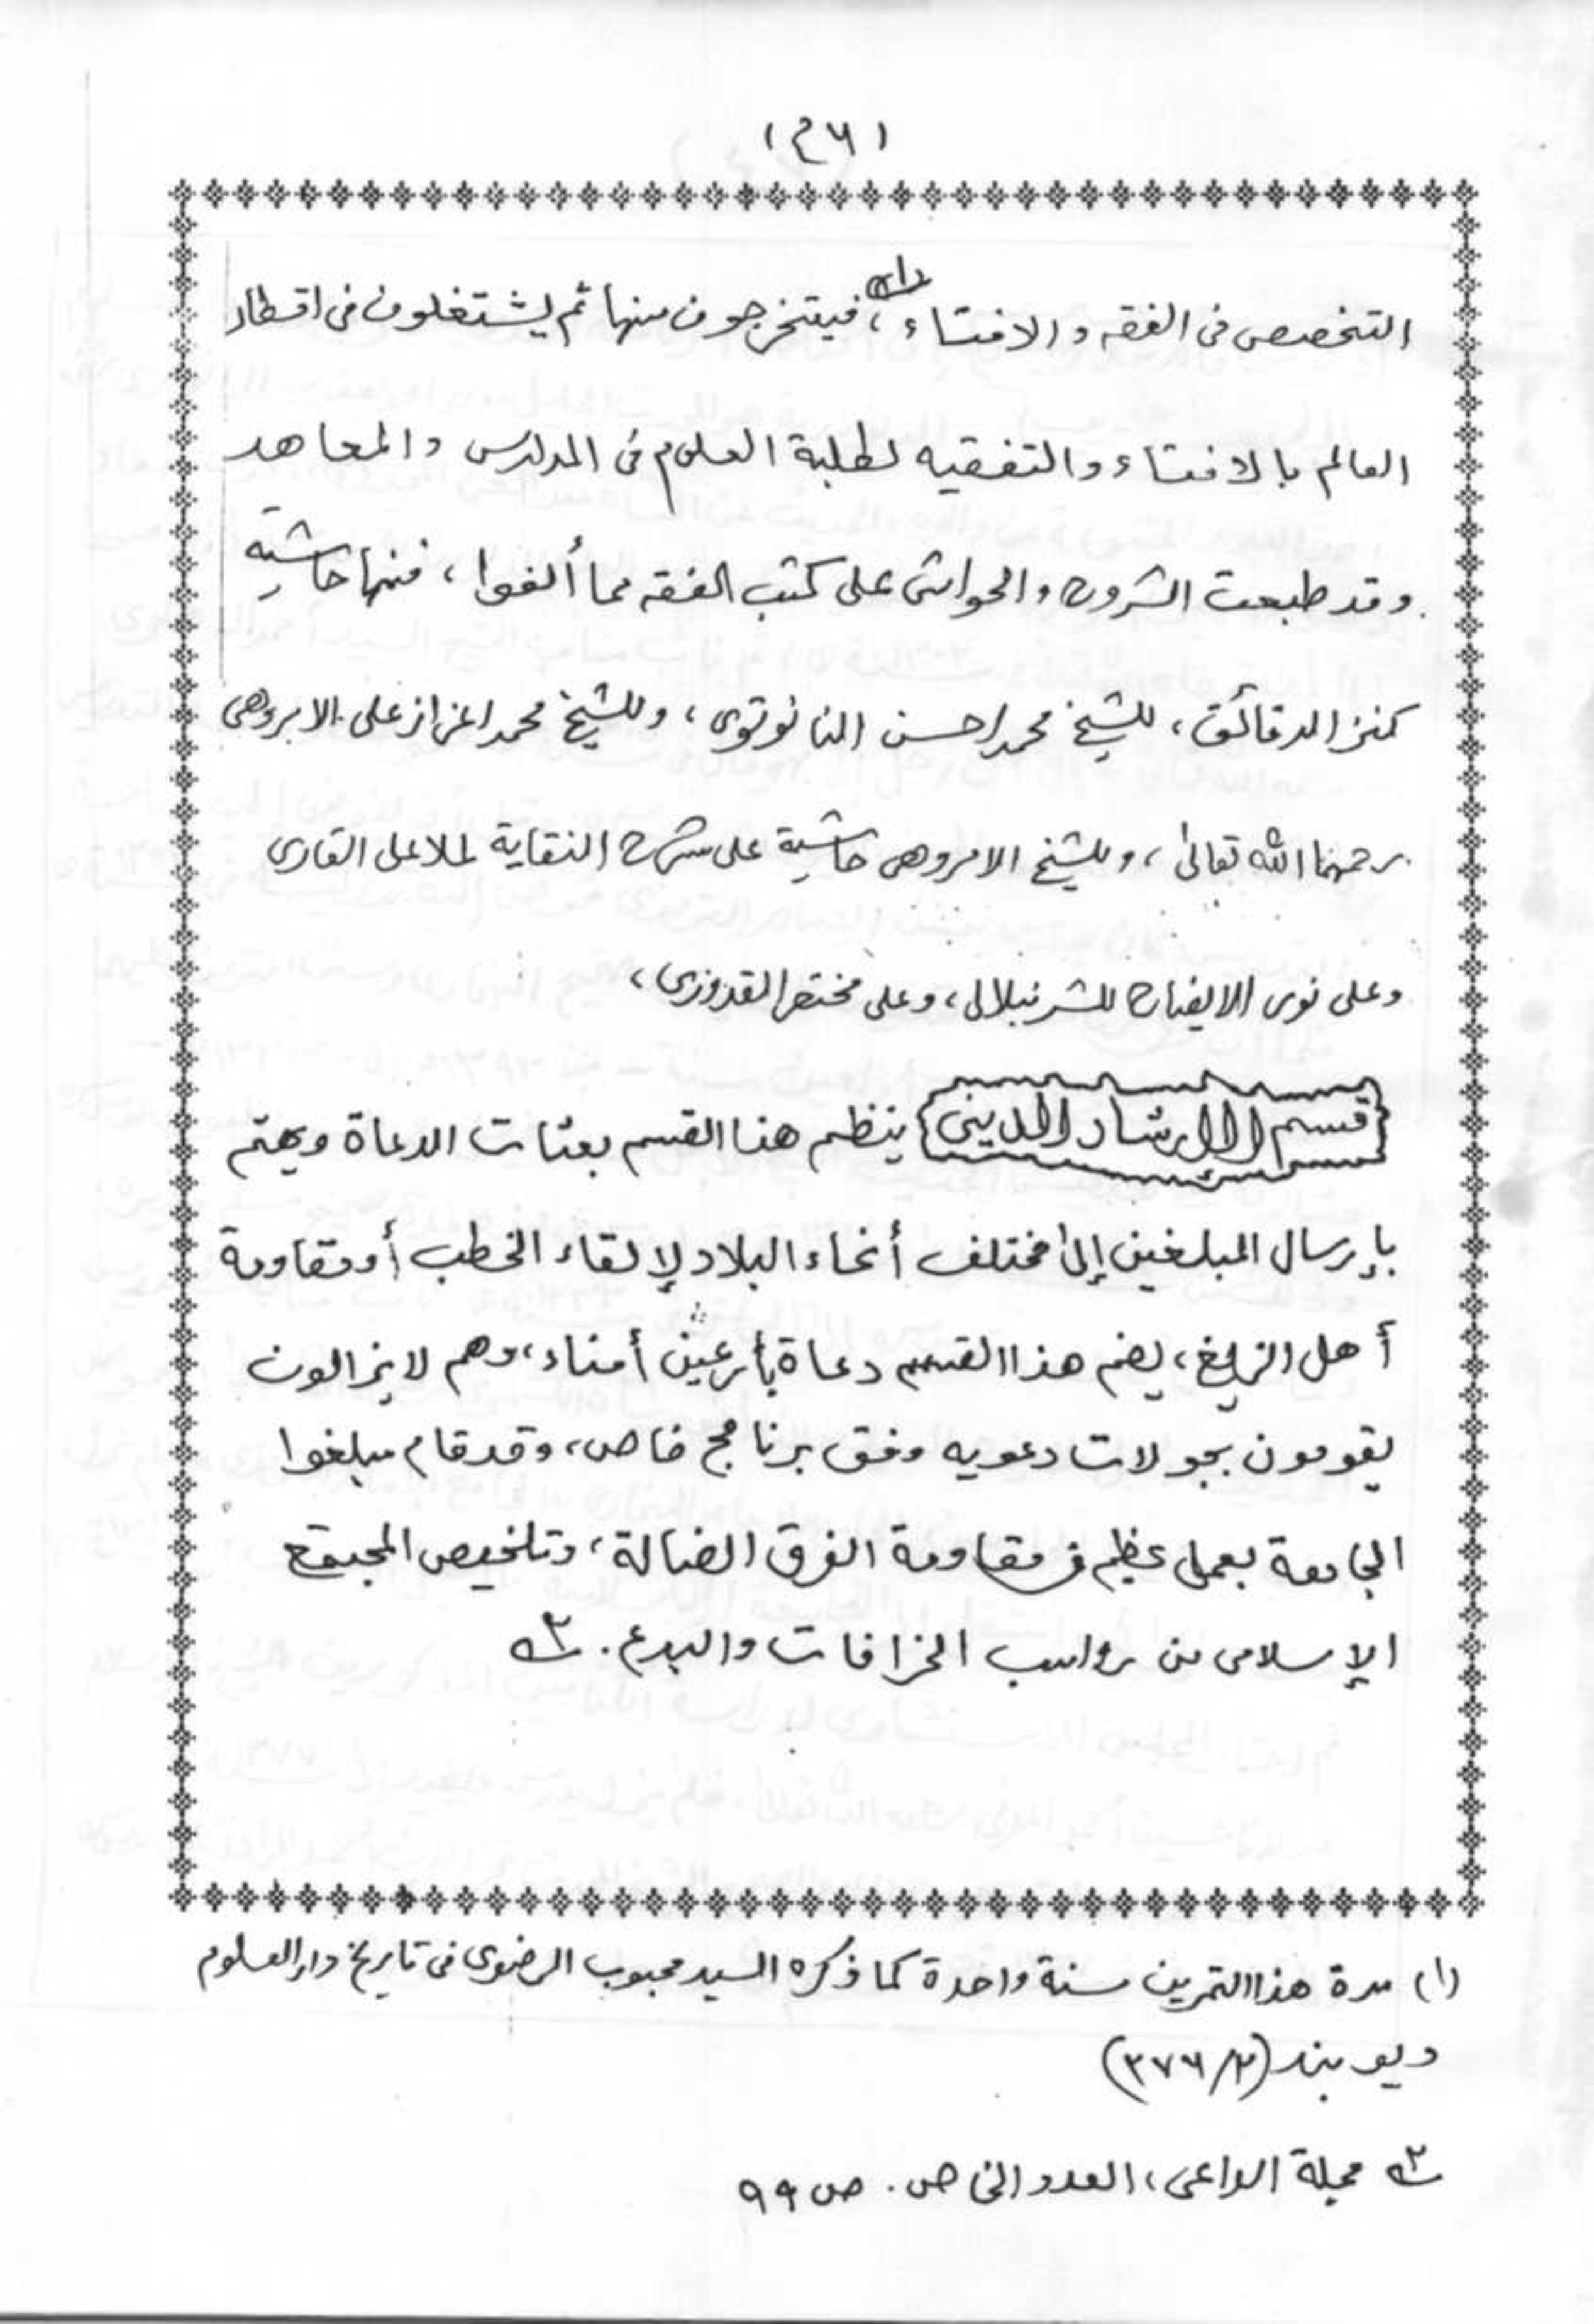 (٤٦)
التخصص فى الفقه والافتاء (١)، فيتخرجون منها ثم يشتغلون فى اقطار
العالم بالافتاء والتفقيه لطلبة العلوم فى المدارس والمعاهد
وقد طبعت الشروح والحواشى على كتب الفقه مما ألفوا، فمنها حاشية
كنز الدقائق، للشيخ محمد احسن النانوتوى، وللشيخ محمد اعزاز على الامروهى
رحمهما الله تعالىٰ، وللشيخ الامروهى حاشية على شرح النقاية لملا على القارى
وعلى نور الايضاح للشرنبلالى، وعلى مختصر القدورى،
{قسم الإرشاد الدينى} ينظم هذا القسم بعثات الدعاة ويهتم
بإرسال المبلغين إلىٰ مختلف أنحاء البلاد لإلقاء الخطب أو مقاومة
أهل الزيغ، يضم هذا القسم دعاة بارعين أمناء، وهم لا يزالون
يقومون بجولات دعويه وفق برنامج خاص، وقد قام مبلغوا
الجامعة بعمل عظيم فى مقاومة الفرق الضالة، وتلخيص المجتمع
الإسلامى من رواسب الخرافات والبدع. ٢ه
(١) مدة هذا التمرين سنة واحدة كما ذكره السيد محبوب الرضوى فى تاريخ دار العلوم
ديوبند (٢/٣٧٦)
٢ه مجلة الداعى، العدد الخاص. ص ٩٩